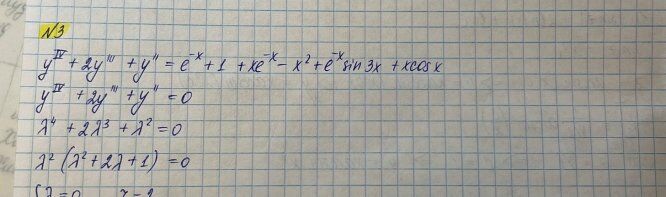 N3
y^IV + 2y''' + y'' = e^-x + 1 + xe^-x - x^2 + e^-x sin 3x + xcosx
y^IV + 2y''' + y'' = 0
λ^4 + 2λ^3 + λ^2 = 0
λ^2 (λ^2 + 2λ + 1) = 0